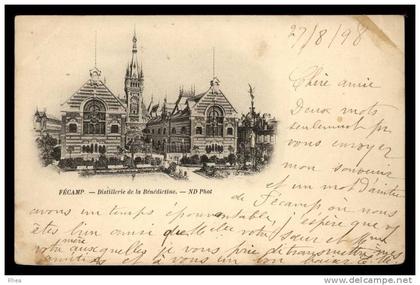 27/8/98
Chère amie
Deux mots
seulement pr
vous envoyer
mon souvenir
et un mot d'amitié
de
Fécamp où nous
FÉCAMP. — Distillerie de la Bénédictine. — ND Phot
avons un temps épouvantable, j'espère que vs
êtes bien ainsi que Me votre sœur et
mère
auxquelles je vous prie de transmettre mes
amitiés et à vous un bon
Rhea
www.delcampe.net